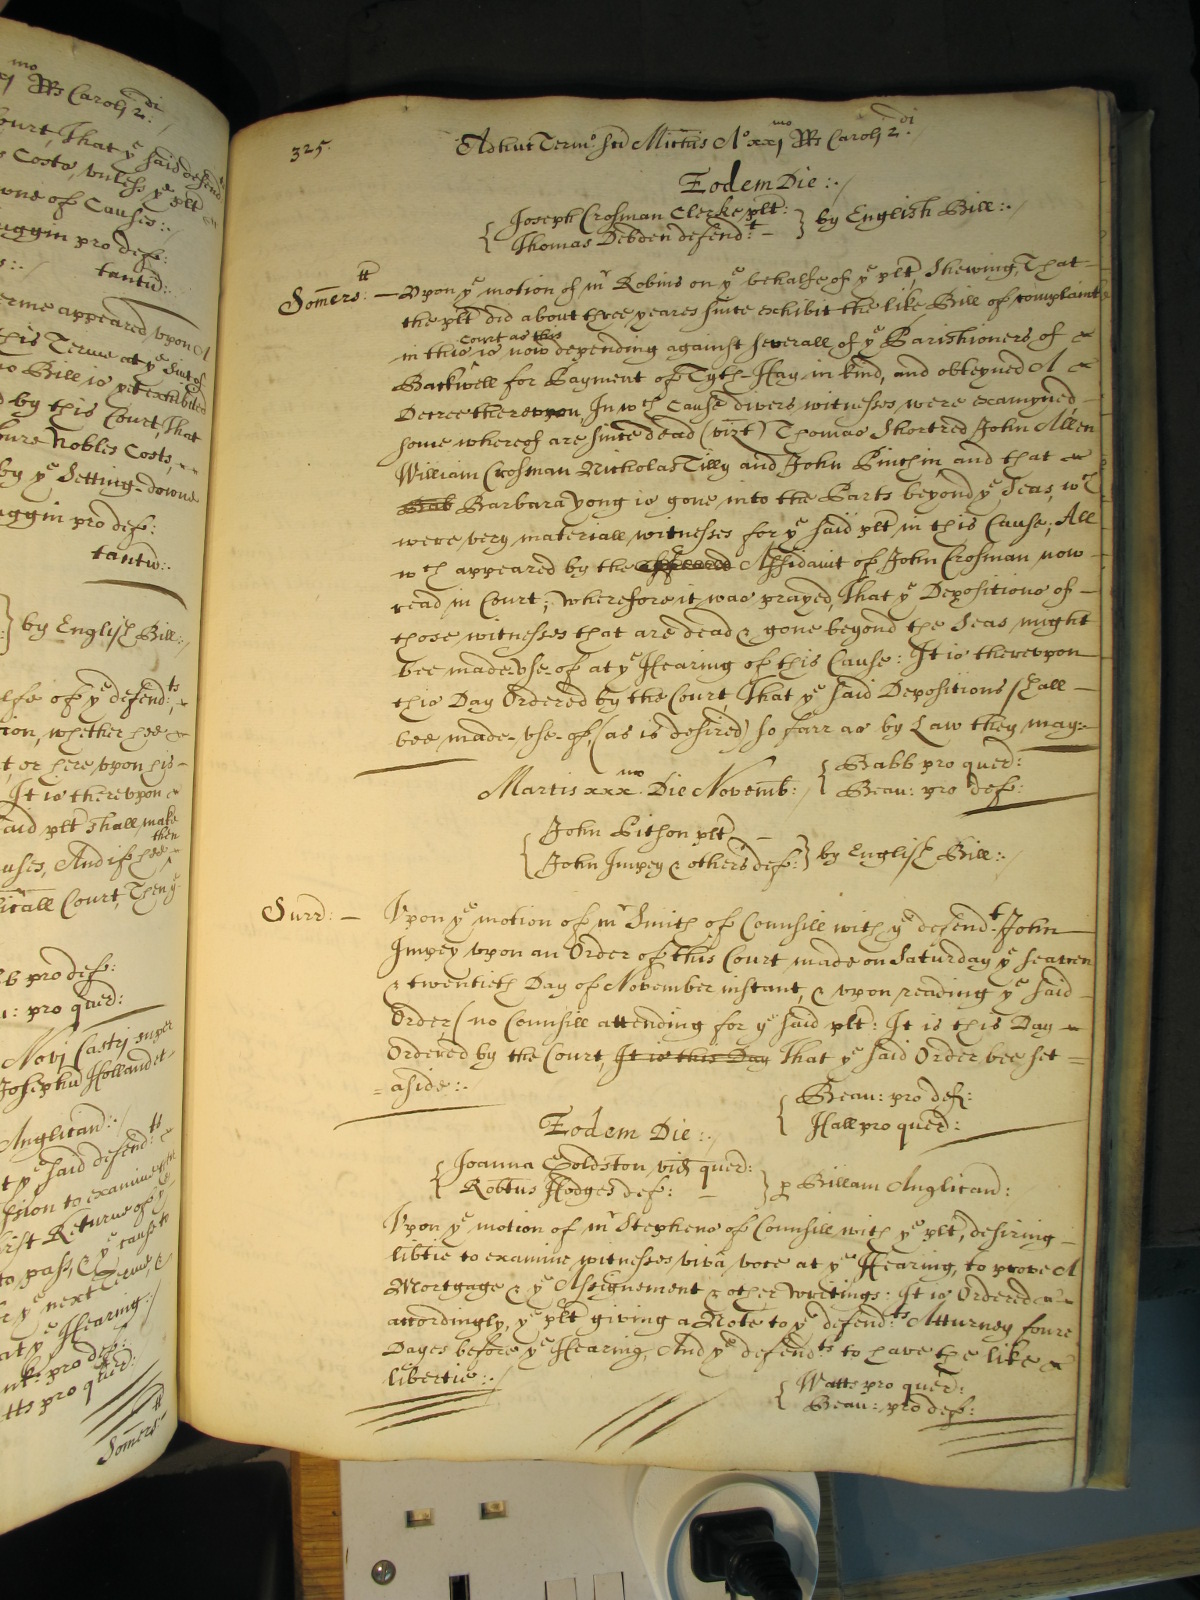 mo
xxj RRs Caroli 2.di
Court, That ye said defend
Costs, unlesse ye plt
one of Causes:
pro def:
tantu:.
erme appeared upon A
this Terme at ye Suit of
no Bill is yet exhibited
d by this Court, That
foure Nobles Costs
by ye Setting-downe
pro def:
tantu:.
} by English Bill:
alfe of ye defend:ts
tion, whether hee
t, or here upon his
It is thereupon
said plt shall make
then
auses, And if hee
icall Court, Then ye
bb pro def:
: pro quer:
Novi Castri super
Josephu Holland et
Anglican:./
t ye said defend:tts
ssion to examine
irst Returne of ye
to pass, & ye cause to
ye next Terme, &
at ye Hearing:/
pro def:
tts pro quer:
tt
Somers:
325.
Adhuc Term: Sci Michis Ao xxjmo RRs Caroli 2.di
Eodem Die:./
{ Joseph Crosman Clerke plt:
Thomas Debden defend:t — } by English Bill:./
Somers:tt — Upon ye motion of mr Robins on ye behalfe of ye plt, Shewing, That
the plt did about three yeares since exhibit the like Bill of complaint
Court as this
in this is now depending against severall of ye Parishioners of
Backwell for Payment of Tyth-Hay in kind, and obteyned A
Decree thereupon, In wch Cause divers witnesses were examyned,
some whereof are since dead (vizt) Thomas Shortred John Allen
William Crosman Nicholas Tilly and John Pinchin, and that
Bab Barbara Yong is gone into the Parts beyond ye Seas, wch
were very materiall witnesses for ye said plt in this Cause; All
wch appeared by the Affidavit of John Crosman now
read in Court; Wherefore it was prayed, That ye Depositions of
those witnesses that are dead & gone beyond the Seas might
bee made-use-of at ye Hearing of this Cause: It is thereupon
this Day Ordered by the Court, That ye said Depositions shall
bee made-use-of, (as is desired) so farr as by Law they may:
{ Babb pro quer:
Martis xxxmo. Die Novemb: Beau: pro def:
{ John Pitson plt —
John Impey & others def: } by English Bill:./
Surr: — Upon ye motion of mr Smith of Counsill with ye defend:t John
Impey upon an Order of this Court made on Saturday ye seaven
& twentieth Day of November instant, & upon reading ye said
Order (no Counsill attending for ye said plt: It is this Day
Ordered by the Court, It is this Day That ye said Order bee set
aside:.
{ Beau: pro def:
Hall pro quer:
Eodem Die:.
{ Joanna Goldston vid quer:
Robtus Hodges def: — } p Billam Anglican:
Upon ye motion of mr Stephens of Counsill with ye plt, desiring
libtie to examine witnesses viva voce at ye Hearing, to prove A
Mortgage & ye Assignement & other Writings: It is Ordered
accordingly, ye plt giving a Note to ye defend:ts Atturney foure
Dayes before ye Hearing, And ye defend:ts to have the like
libertie:.
{ Watts pro quer:
Beau: pro def: